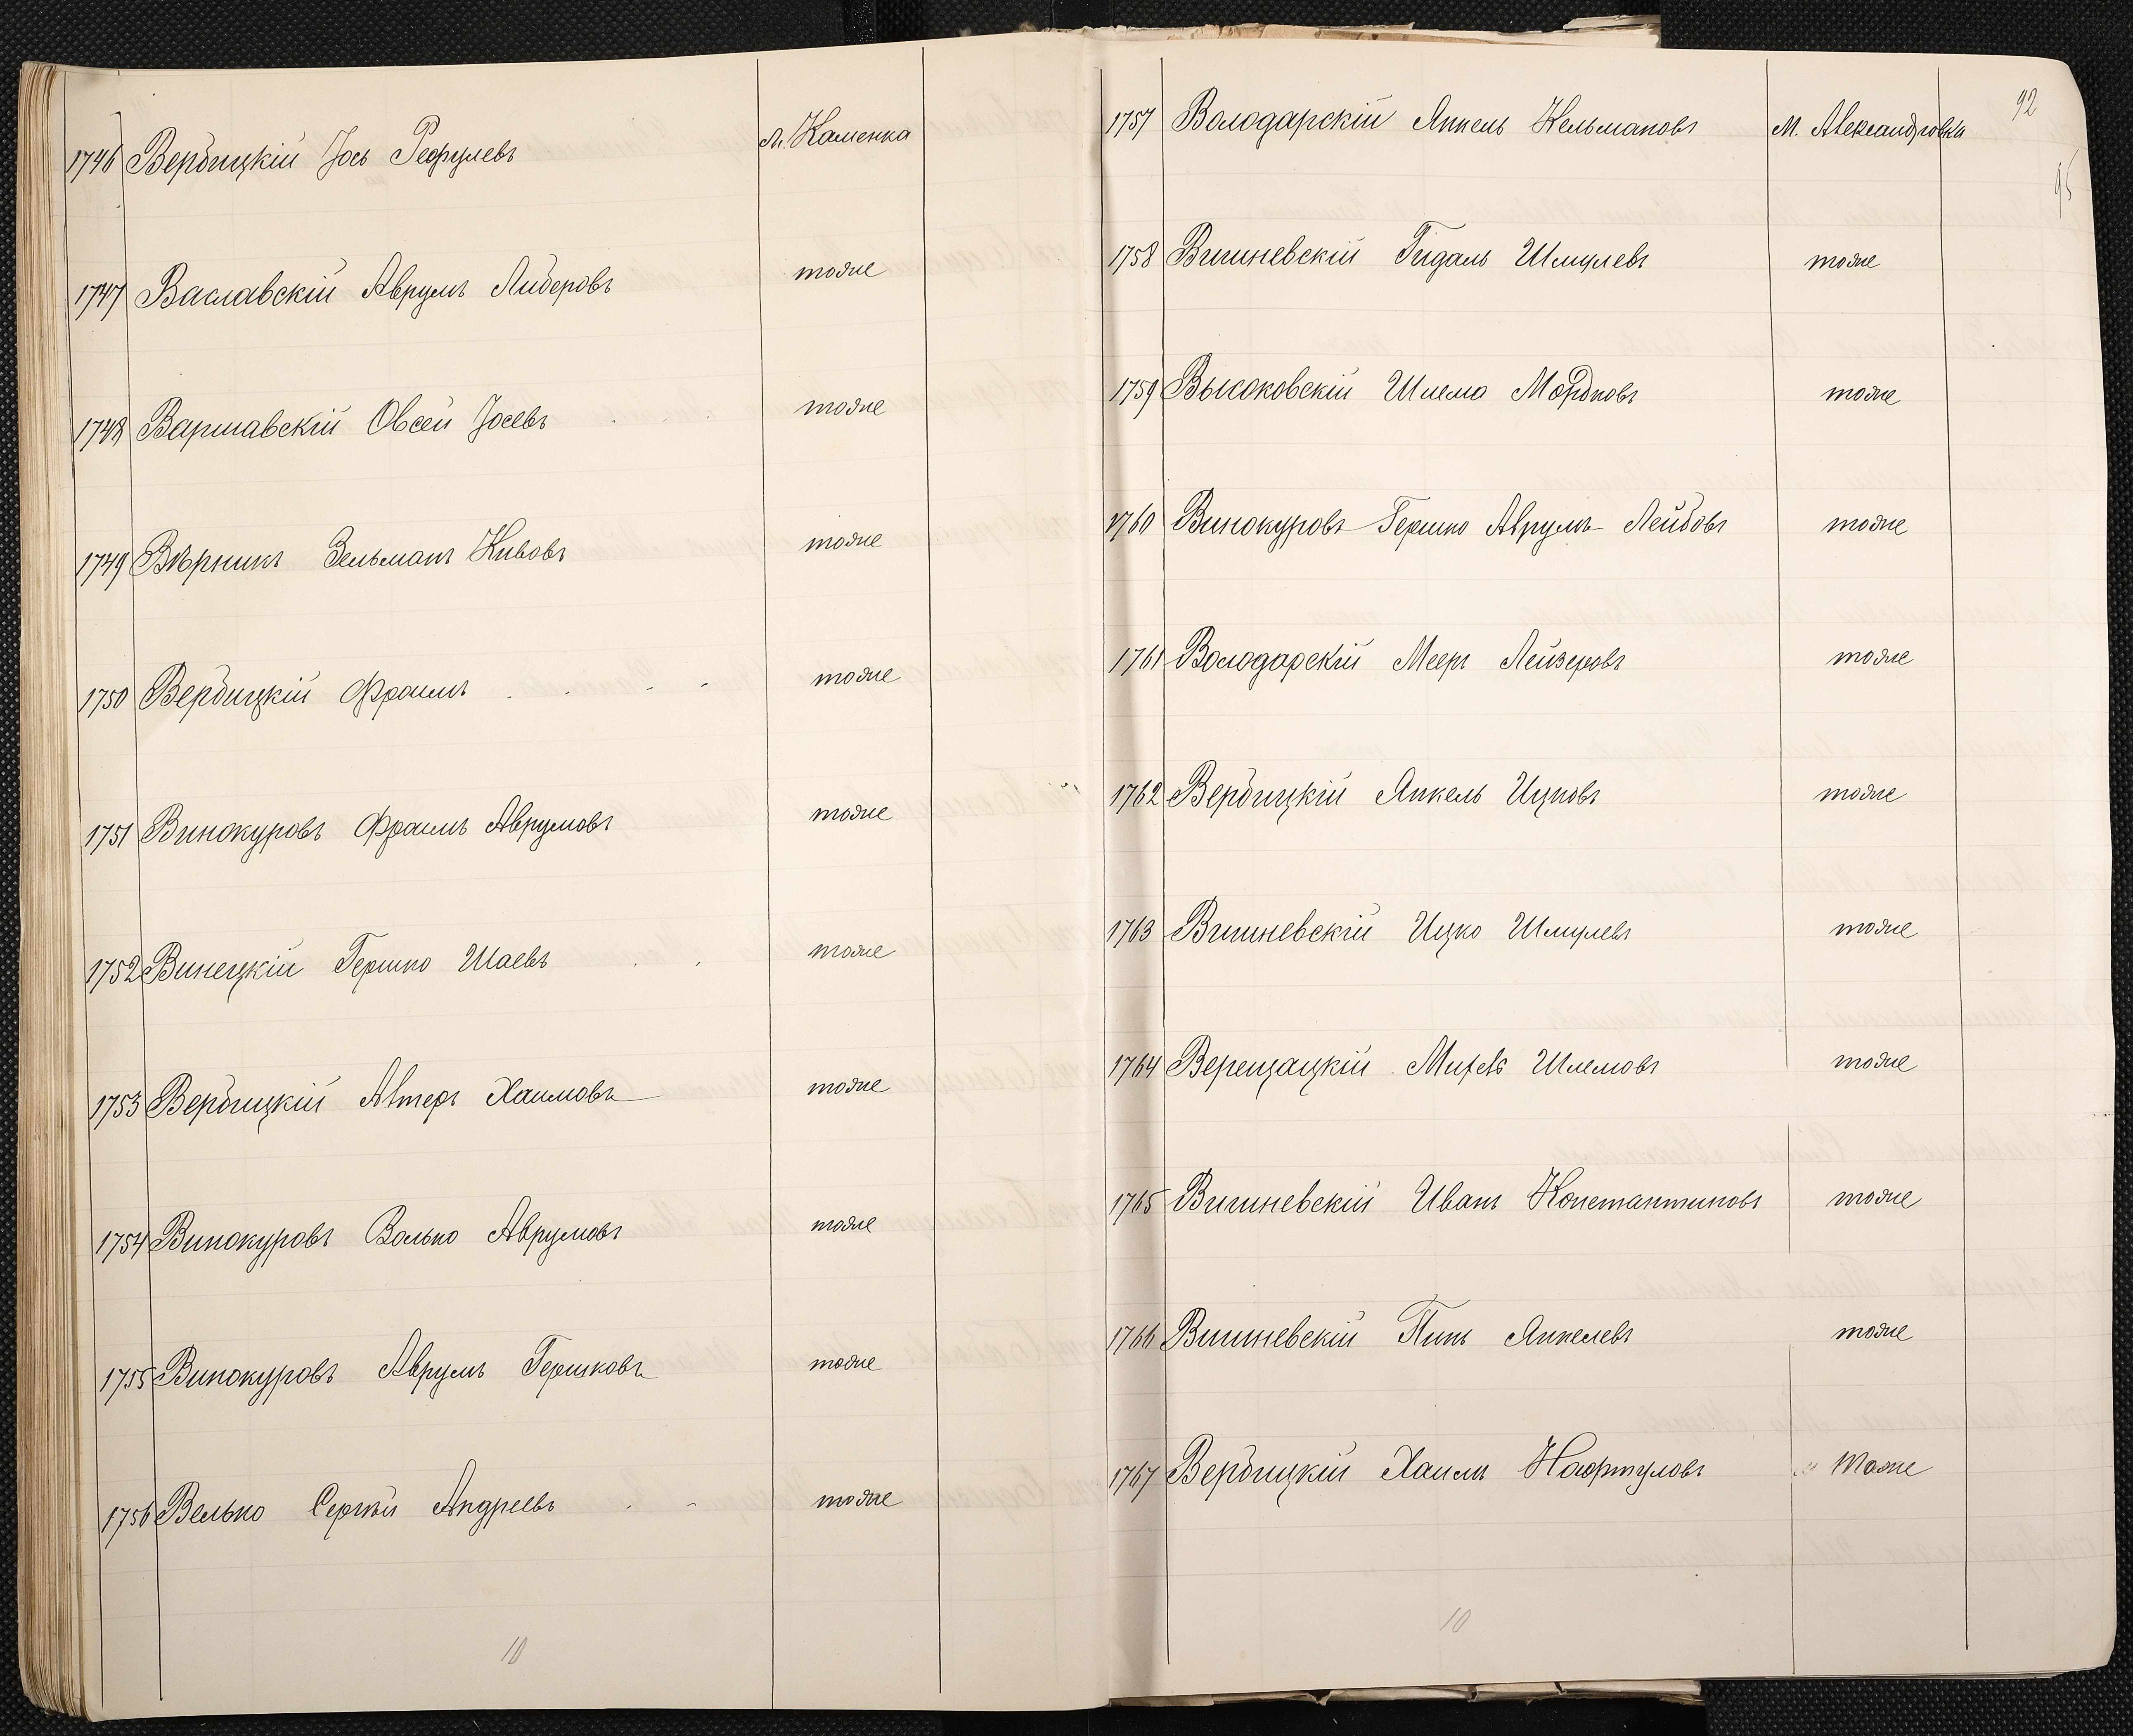 1746 Вербицкій Іось Рефулевъ м. Каменка
1747 Ваславскій Аврумъ Либеровъ тоже
1748 Варшавскій Овсей Іосевъ тоже
1749 Вѣрникъ Зельманъ Кивовъ тоже
1750 Вербицкій Фроимъ тоже
1751 Винокуровъ Фроимъ Аврумовъ тоже
1752 Винецкій Гершко Шаевъ тоже
1753 Вербицкій Алтеръ Хаимовъ тоже
1754 Винокуровъ Волько Аврумовъ тоже
1755 Винокуровъ Аврумъ Гершковъ тоже
1756 Велько Сергѣй Андреевъ тоже
10
92
95
1757 Володарскій Янкель Кельмановъ м. Александровка
1758 Вишневскій Гидаль Шмулевъ тоже
1759 Высоковскій Шлема Мордковъ тоже
1760 Винокуровъ Гершко Аврумъ Лейбовъ тоже
1761 Володарскій Мееръ Лейзеровъ тоже
1762 Вербицкій Янкель Ицковъ тоже
1763 Вишневскій Ицко Шмулевъ тоже
1764 Верещацкій Михель Шлемовъ тоже
1765 Вишневскій Иванъ Константиновъ тоже
1766 Вишневскій Пинь Янкелевъ тоже
1767 Вербицкій Хаимъ Нафтуловъ тоже
10